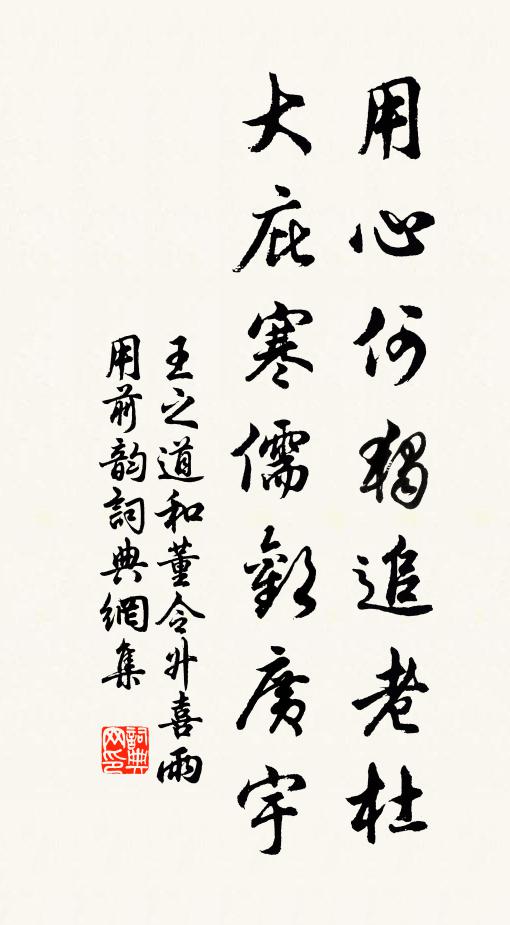 用心何獨追老杜
大庇寒儒歡廣宇
王之道和董令升喜雨
用前韵詞典網集
詞典网印